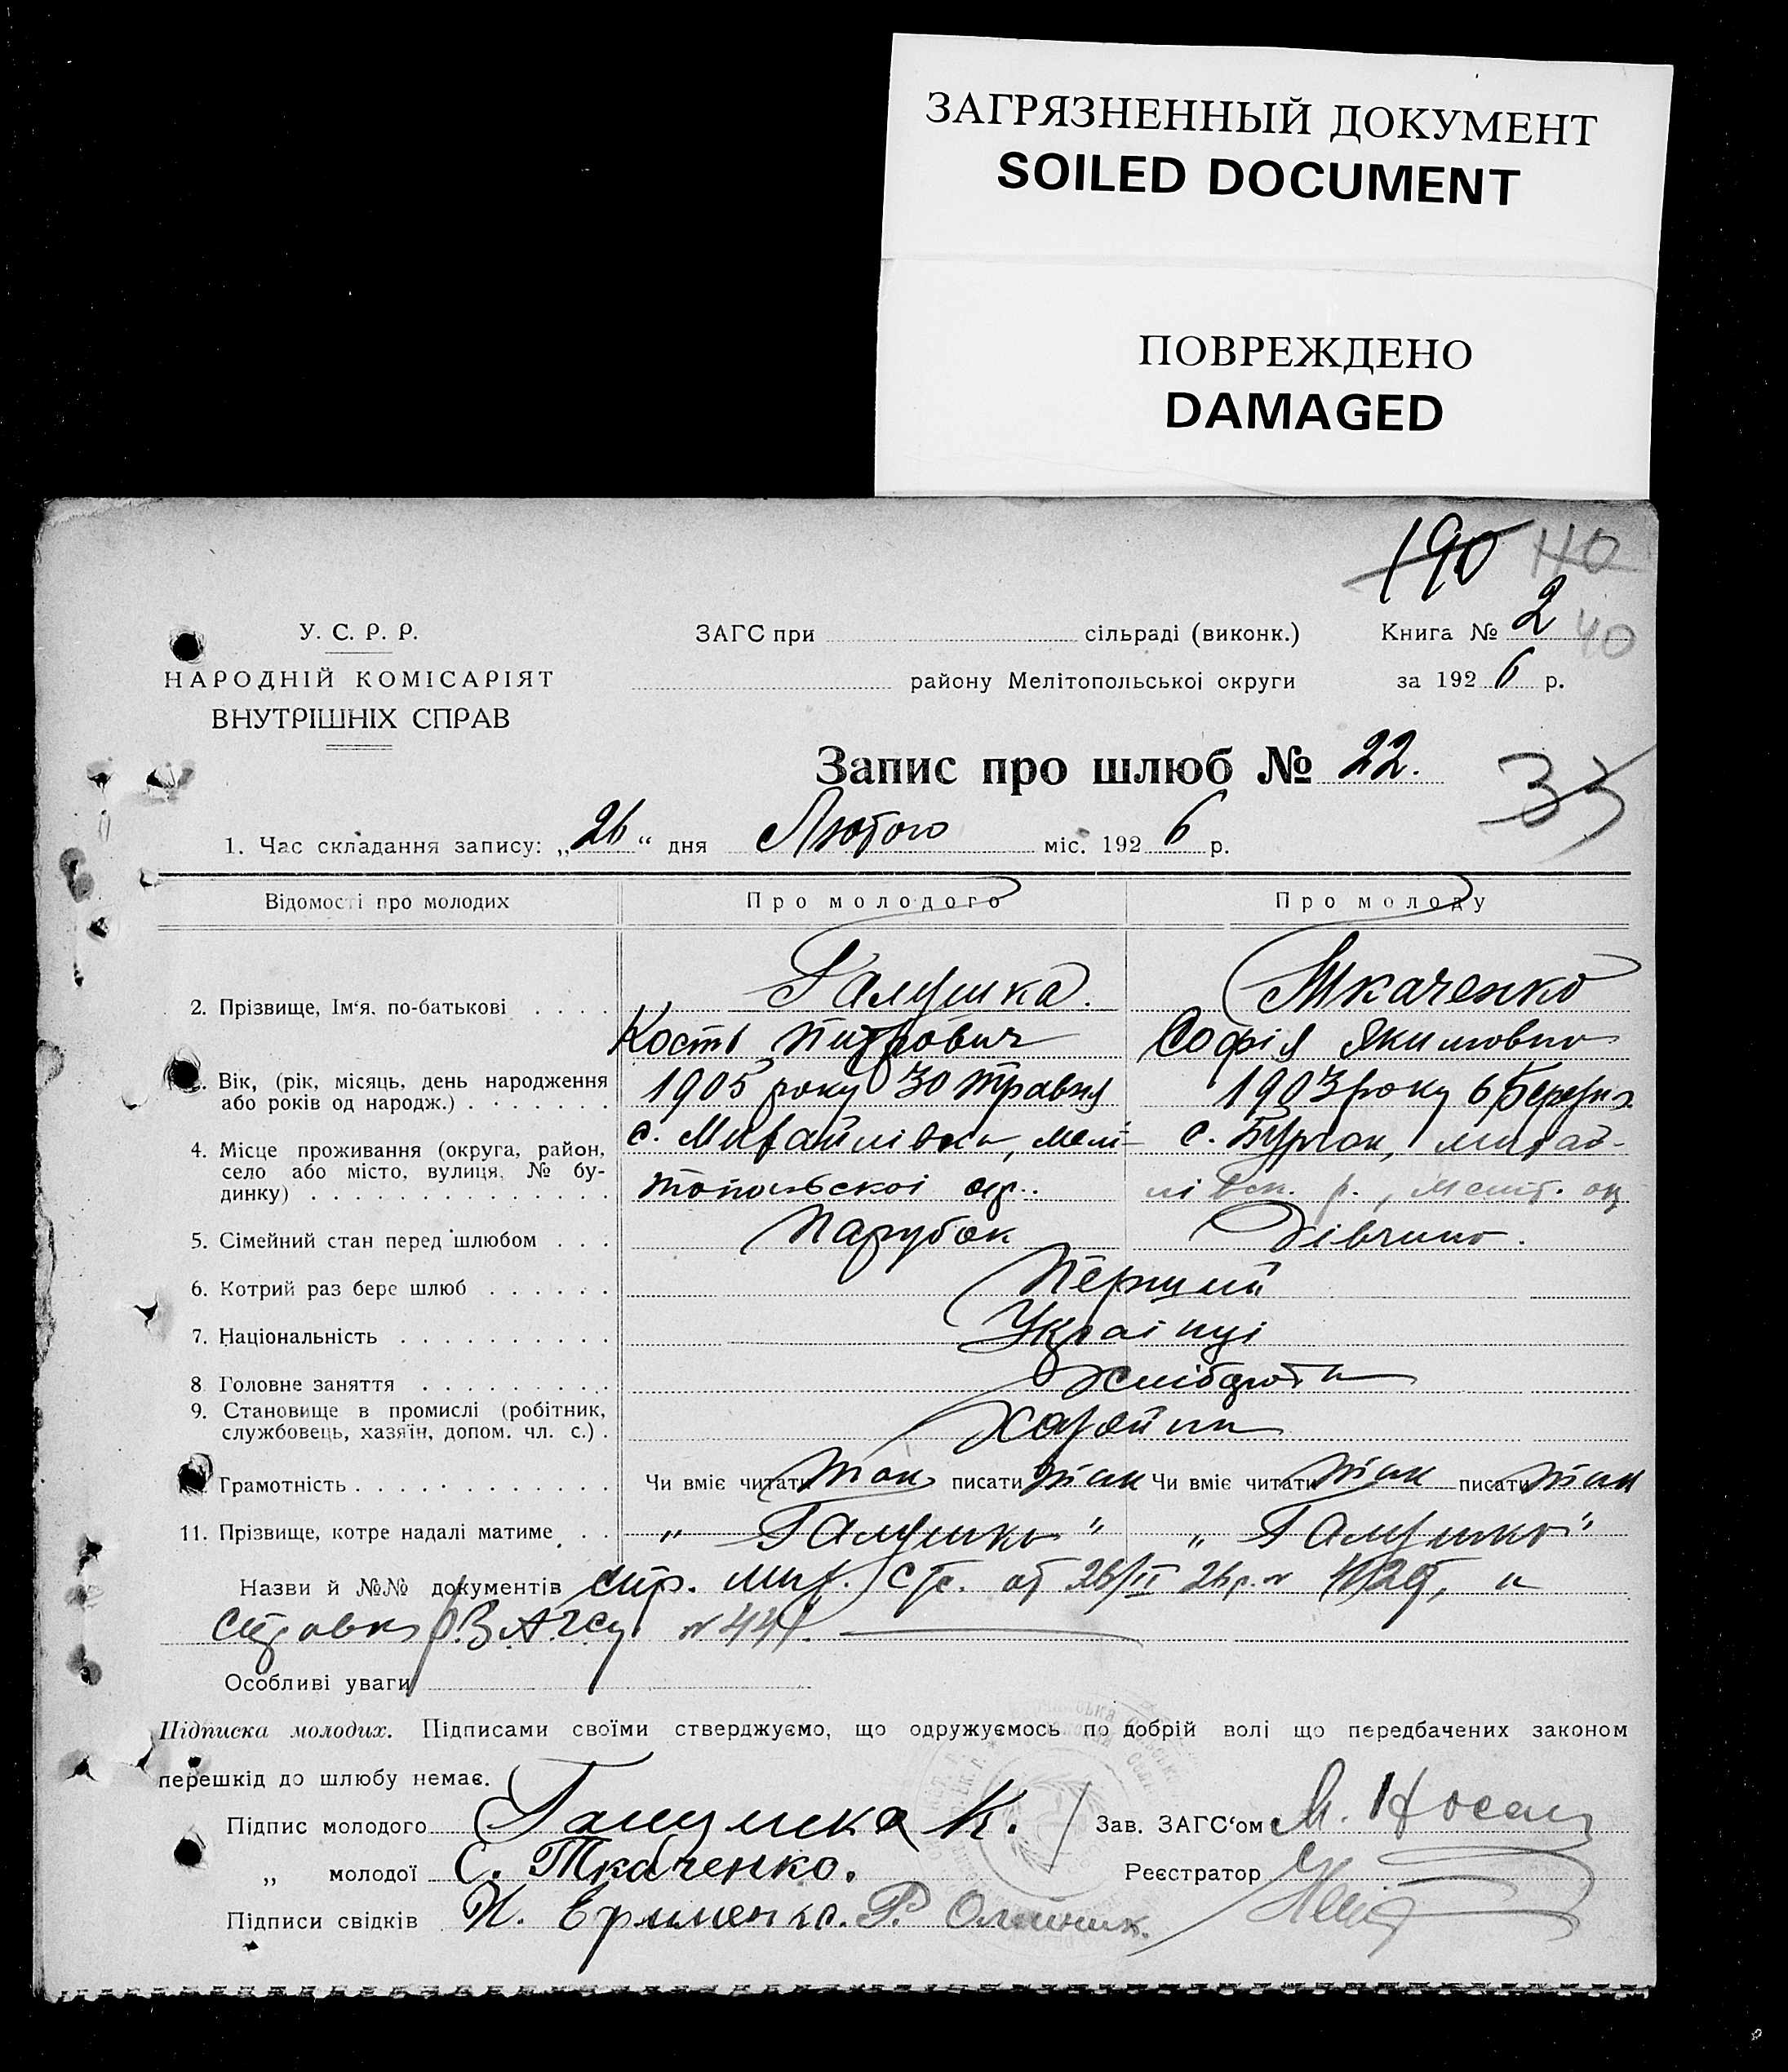 ЗАГРЯЗНЕННЫЙ ДОКУМЕНТ
SOILED DOCUMENT
ПОВРЕЖДЕНО
DAMAGED
190 110
У. С. Р. Р.
НАРОДНІЙ КОМІСАРІЯТ
ВНУТРІШНІХ СПРАВ
ЗАГС при сільраді (виконк.) Книга № 2 40
району Мелітопольської округи за 1926 р.
Запис про шлюб № 22.
33
1. Час складання запису: „26“ дня Лютого міс. 1926 р.
Відомості про молодих Про молодого Про молоду
2. Прізвище, Ім'я, по-батькові Галушка. Ткаченко
Кость Петрович Софія Якимовна
Вік, (рік, місяць, день народження або років од народж.) 1905 року 30 травня 1903 року 6 Березня
4. Місце проживання (округа, район, село або місто, вулиця, № будинку) с. Михайлівка, Мелітопольскоі окр. с. Бурчак, михайлівск. р., Меліт. ок
5. Сімейний стан перед шлюбом Парубок Дівчина.
6. Котрий раз бере шлюб Перший
7. Національність Украінці
8 Головне заняття
9. Становище в промислі (робітник, службовець, хазяїн, допом. чл. с.) Хазяйни
Грамотність Чи вміє читати так писати так Чи вміє читати так писати так
11. Прізвище, котре надалі матиме „Галушка“ „Галушко“
Назви й №№ документів спр. мих. с/с. від 26/II 26 р. и
справка ЗАГСу №
Особливі уваги
Підписка молодих. Підписами своїми стверджуємо, що одружуємось по добрій волі що передбачених законом
перешкід до шлюбу немає.
Підпис молодого Галушка К. Зав. ЗАГС'ом М. Носач
„ молодої С. Ткаченко. Реєстратор
Підписи свідків Н. Ерименко. Р. Олійник.